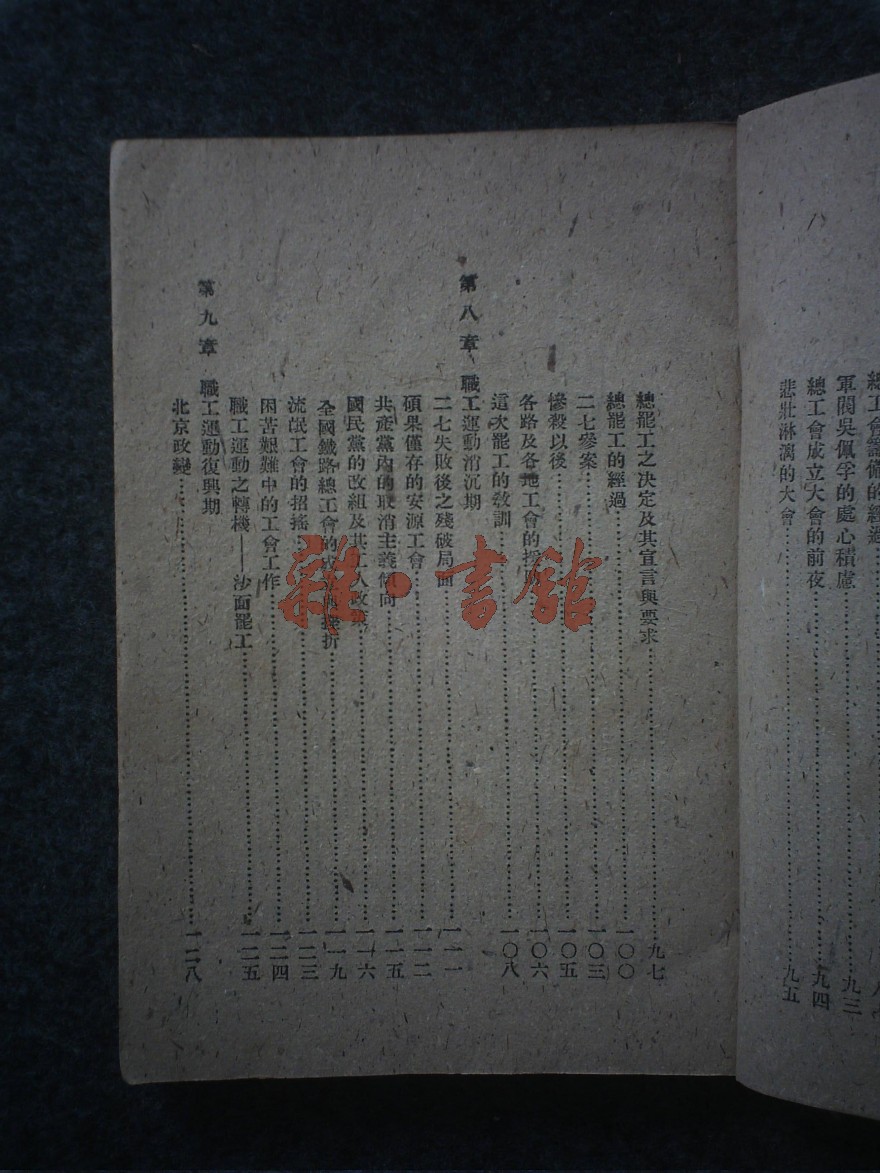 軍閥吳佩孚的處心積慮……九三
總工會成立大會的前夜……九四
悲壯淋漓的大會……九五
總罷工之決定及其宣言與要求……九七
總罷工的經過……一〇〇
二七慘案……一〇三
慘殺以後……一〇五
各路及各地工會的援……一〇六
這次罷工的敎訓……一〇八
第八章 職工運動消沉期
二七失敗後之殘破局面……一一一
碩果僅存的安源工會……一一二
共產黨內的取消主義傾向……一一五
國民黨的改組及其工人政策……一一六
全國鐵路總工會的成立與挫折……一一九
流氓工會的招搖……一二三
困苦艱難中的工會工作……一二四
職工運動之轉機——沙面罷工……一二五
第九章 職工運動復興期
北京政變……一二八
雜·書館